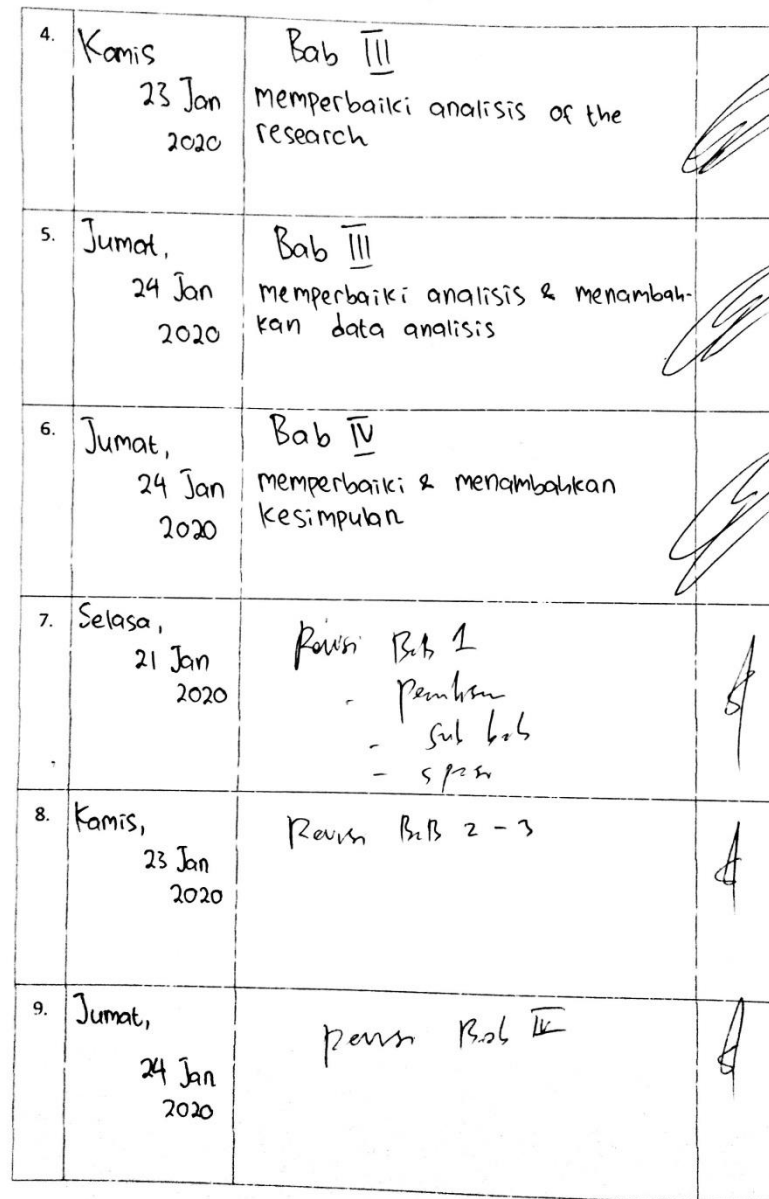 4.
Kamis
23 Jan
2020
Bab III
memperbaiki analisis of the
research
5.
Jumat,
24 Jan
2020
Bab III
memperbaiki analisis & menambah-
kan data analisis
6.
Jumat,
24 Jan
2020
Bab IV
memperbaiki & menambahkan
kesimpulan
7.
Selasa,
21 Jan
2020
Revisi Bab 1
-
- Sub bab
- spasi
8.
Kamis,
23 Jan
2020
Revisi BaB 2 - 3
9.
Jumat,
24 Jan
2020
Revisi Bab IV